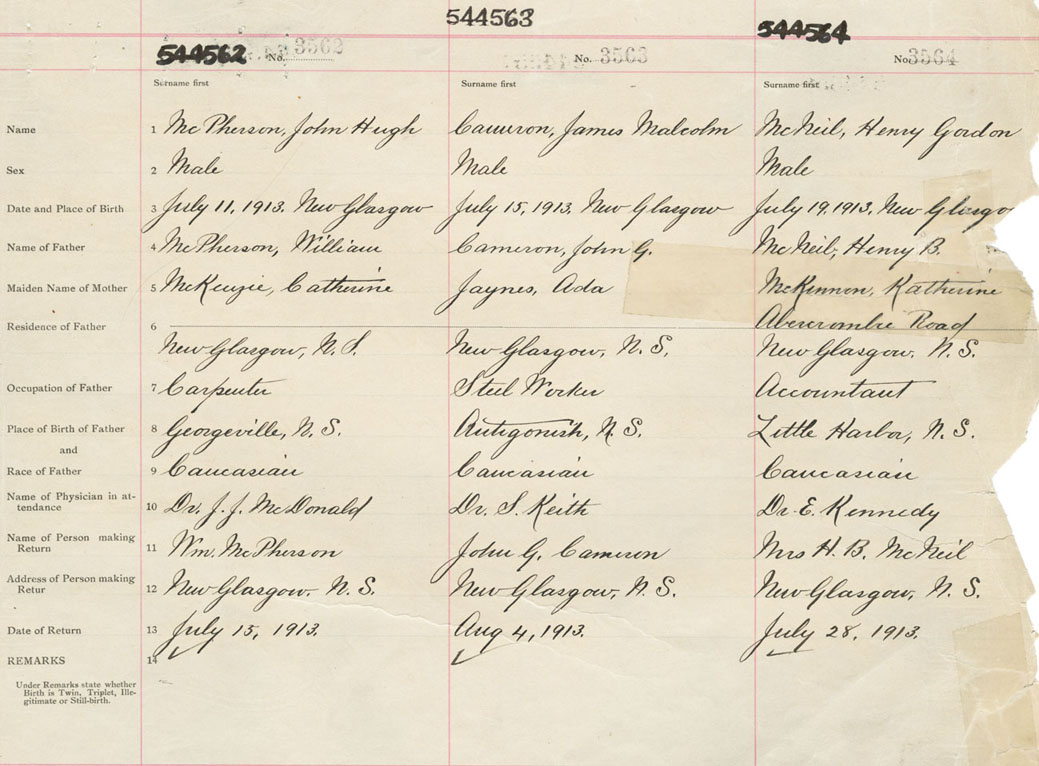 544562 544563 544564
No. 3562 No. 3563 No. 3564
Surname first Surname first Surname first
Name 1 McPherson, John Hugh Cameron, James Malcolm McNeil, Henry Gordon
Sex 2 Male Male Male
Date and Place of Birth 3 July 11, 1913. New Glasgow July 15, 1913. New Glasgow July 19, 1913, New Glasgo
Name of Father 4 McPherson, William Cameron, John G. McNeil, Henry B.
Maiden Name of Mother 5 McKenzie, Catherine Jaynes, Ada McKinnon, Katherine
Abercrombie Road
Residence of Father 6 New Glasgow, N.S. New Glasgow, N.S. New Glasgow, N.S.
Occupation of Father 7 Carpenter Steel Worker Accountant
Place of Birth of Father 8 Georgeville, N.S. Antigonish, N.S. Little Harbor, N.S.
and
Race of Father 9 Caucasian Caucasian Caucasian
Name of Physician in at-
tendance 10 Dr. J. J. McDonald Dr. S. Keith Dr. E. Kennedy
Name of Person making
Return 11 Wm. McPherson John G. Cameron Mrs H. B. McNeil
Address of Person making
Retur 12 New Glasgow, N.S. New Glasgow, N.S. New Glasgow, N.S.
Date of Return 13 July 15, 1913. Aug 4, 1913. July 28, 1913.
REMARKS 14
Under Remarks state whether
Birth is Twin, Triplet, Ille-
gitimate or Still-birth.